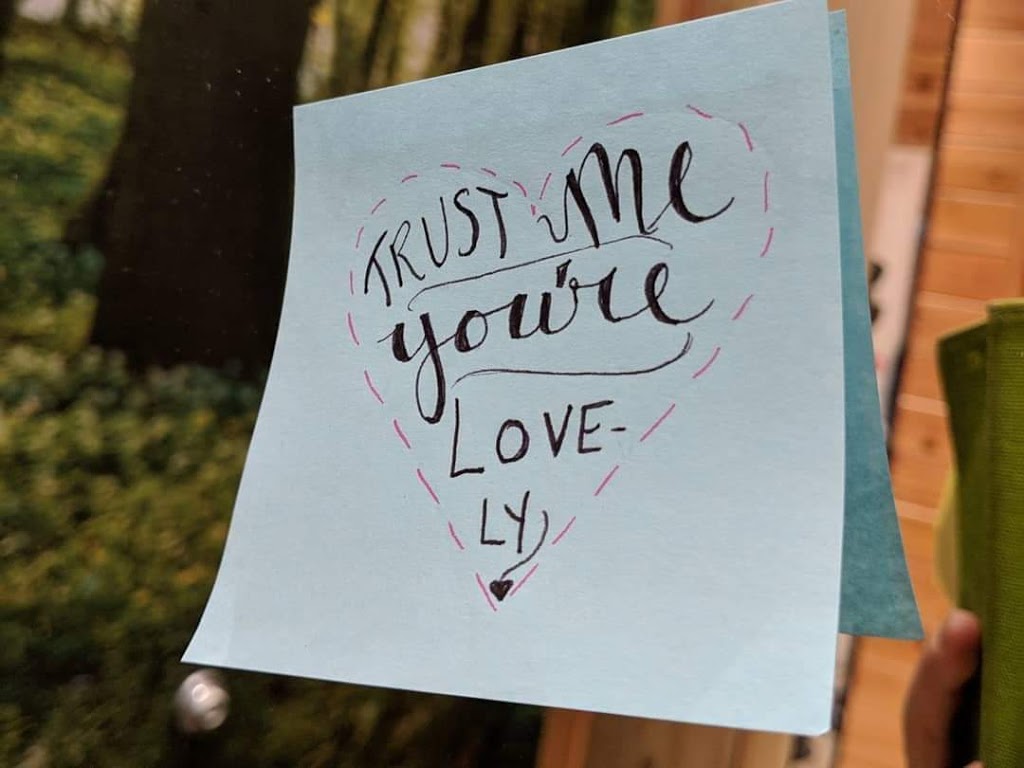 TRUST Me
you're
LOVE-
LY